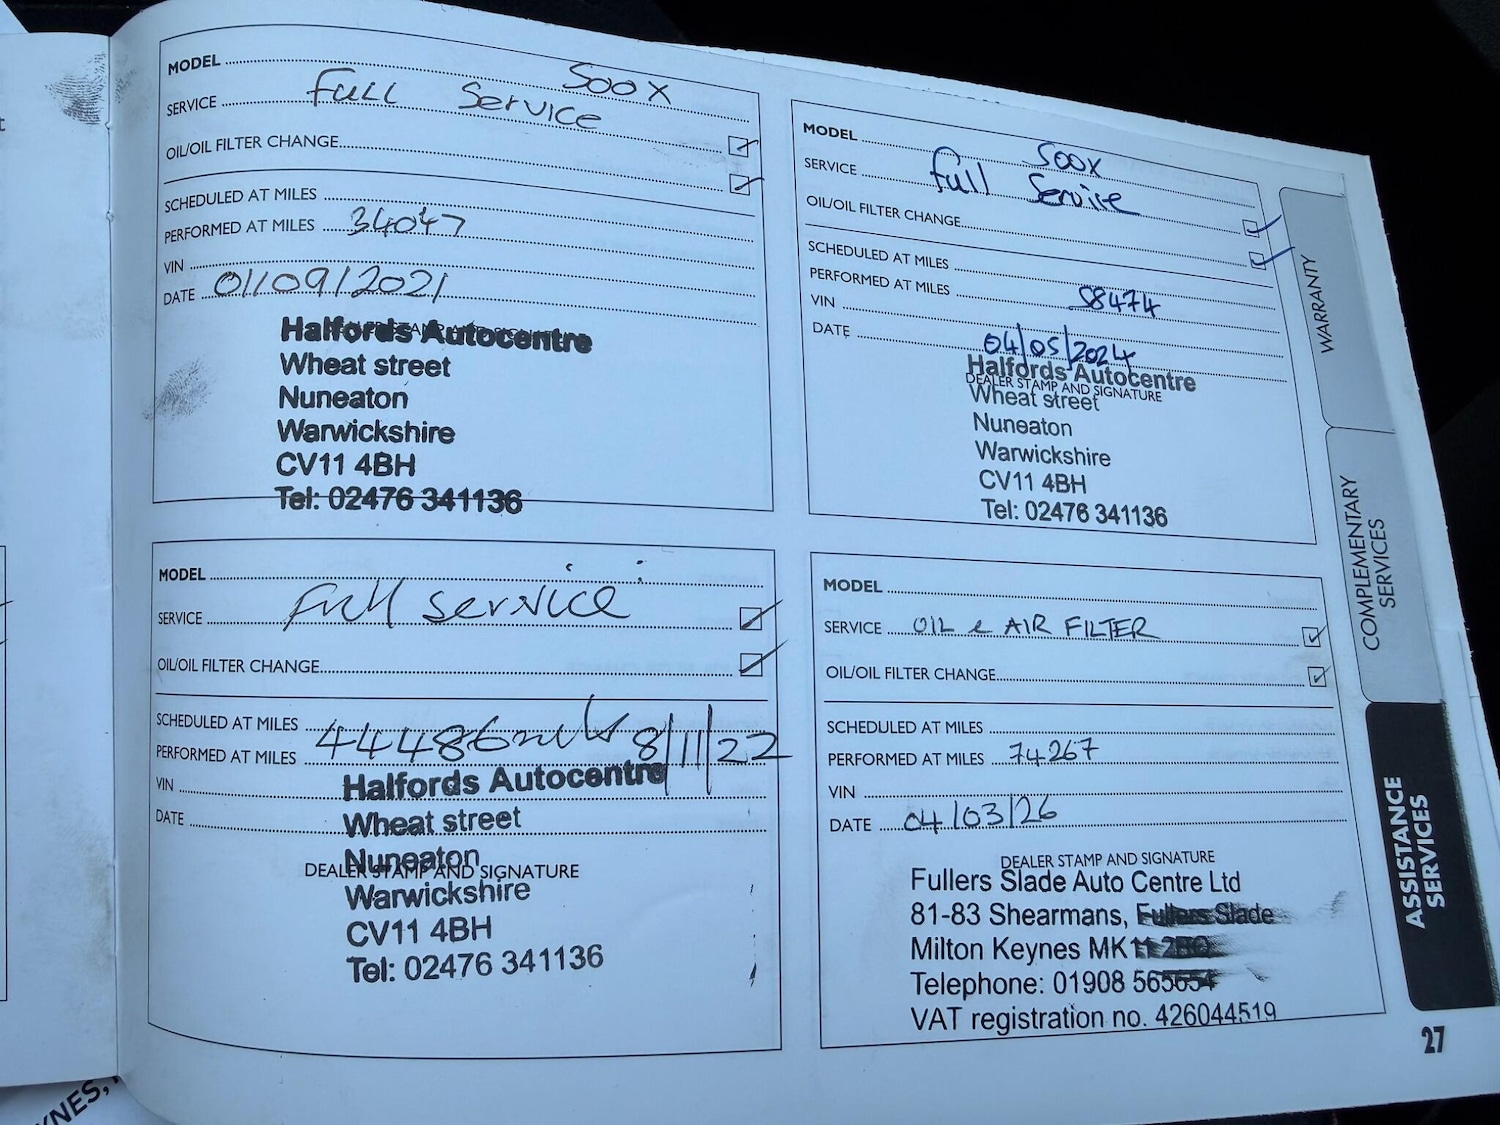 MODEL 500X
SERVICE Full Service
OIL/OIL FILTER CHANGE
SCHEDULED AT MILES
PERFORMED AT MILES 34047
VIN
DATE 01/09/2021
Halfords Autocentre
Wheat street
Nuneaton
Warwickshire
CV11 4BH
Tel: 02476 341136
MODEL
SERVICE Full service
OIL/OIL FILTER CHANGE
SCHEDULED AT MILES
PERFORMED AT MILES 44486 mils 8/11/22
VIN
DATE
Halfords Autocentre
Wheat street
Nuneaton
DEALER STAMP AND SIGNATURE
Warwickshire
CV11 4BH
Tel: 02476 341136
MODEL 500X
SERVICE full Service
OIL/OIL FILTER CHANGE
SCHEDULED AT MILES
PERFORMED AT MILES 58474
VIN
DATE 04/05/2024
Halfords Autocentre
DEALER STAMP AND SIGNATURE
Wheat street
Nuneaton
Warwickshire
CV11 4BH
Tel: 02476 341136
MODEL
SERVICE OIL & AIR FILTER
OIL/OIL FILTER CHANGE
SCHEDULED AT MILES
PERFORMED AT MILES 74267
VIN
DATE 04/03/26
DEALER STAMP AND SIGNATURE
Fullers Slade Auto Centre Ltd
81-83 Shearmans, Fullers Slade
Milton Keynes MK11 2BQ
Telephone: 01908 565654
VAT registration no. 426044519
WARRANTY
COMPLEMENTARY
SERVICES
ASSISTANCE
SERVICES
27